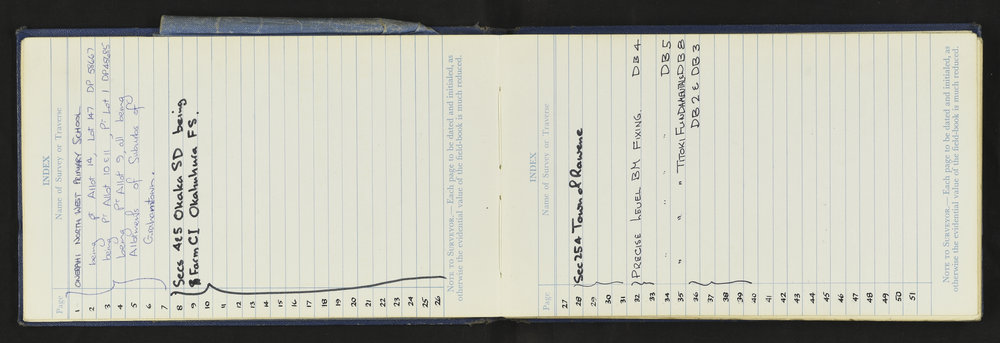 INDEX
Page Name of Survey or Traverse
1 ONERAHI NORTH WEST PRIMARY SCHOOL
2 being Pt Allot 14, Lot 147 DP 58667
3 being Pt Allot 10 & 11, Pt Lot 1 DP 45685
4 being Pt Allot 9, all being
5 Allotments of Suburbs of
6 Grahamtown.
7
8 Secs 4 & 5 Okaka SD being
9 Farm CI Okahuhura FS.
10
11
12
13
14
15
16
17
18
19
20
21
22
23
24
25
26
NOTE TO SURVEYOR.— Each page to be dated and initialed, as
otherwise the evidential value of the field-book is much reduced.
INDEX
Page Name of Survey or Traverse
27
28 Sec 254 Town of Rawene
29
30
31
32 PRECISE LEVEL BM FIXING. DB 4
33
34 " " " DB 5
35 " " " TITOKI FUNDAMENTALS DB 8
36 DB 2 & DB 3
37
38
39
40
41
42
43
44
45
46
47
48
49
50
51
NOTE TO SURVEYOR.— Each page to be dated and initialed, as
otherwise the evidential value of the field-book is much reduced.